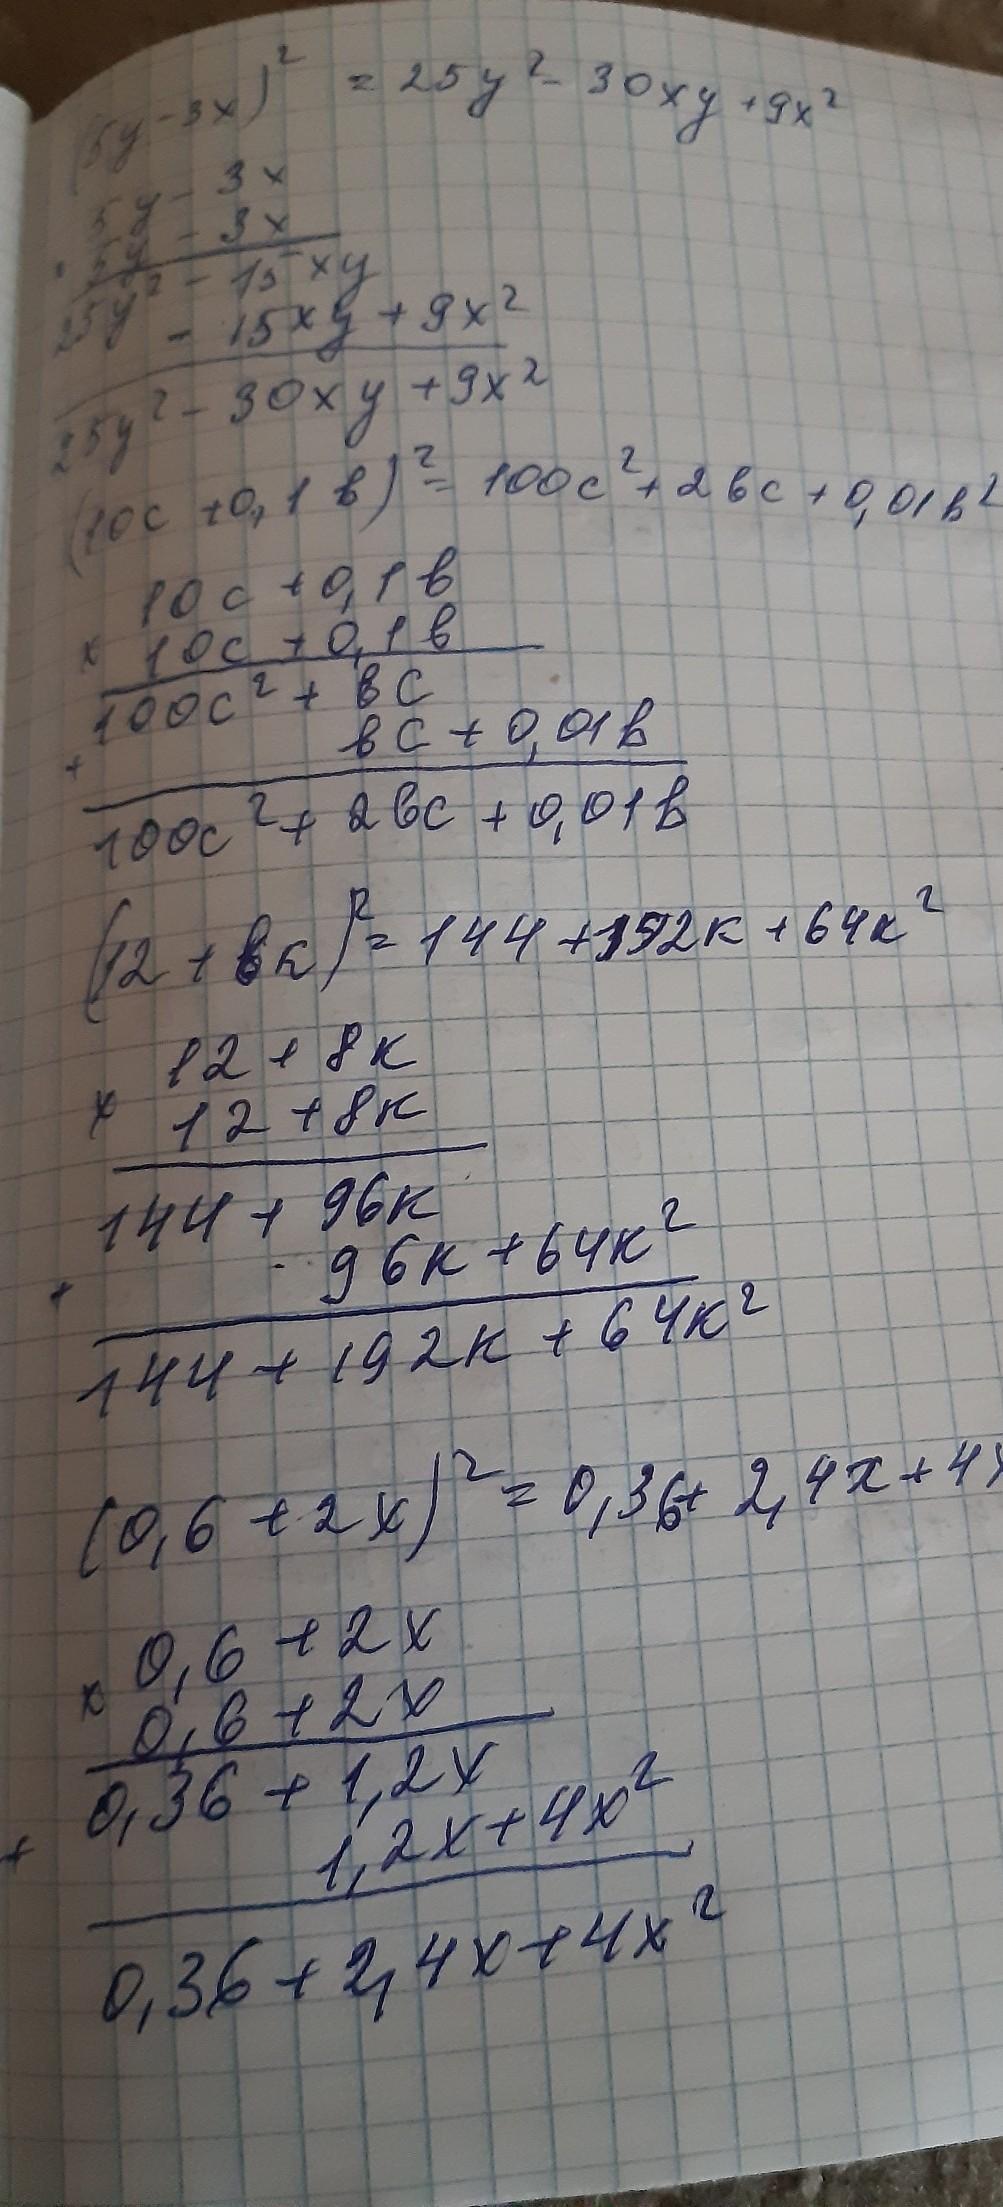 (5y - 3x)² = 25y² - 30xy + 9x²
5y - 3x
· 5y - 3x
25y² - 15xy
- 15xy + 9x²
25y² - 30xy + 9x²
(10c + 0,1в)² = 100c² + 2вc + 0,01в²
10c + 0,1в
x 10c + 0,1в
100c² + вc
+ вc + 0,01в
100c² + 2вc + 0,01в
(12 + 8к)² = 144 + 192к + 64к²
12 + 8к
x 12 + 8к
144 + 96к
+ 96к + 64к²
144 + 192к + 64к²
(0,6 + 2x)² = 0,36 + 2,4x + 4x
0,6 + 2x
x 0,6 + 2x
0,36 + 1,2x
+ 1,2x + 4x²
0,36 + 2,4x + 4x²